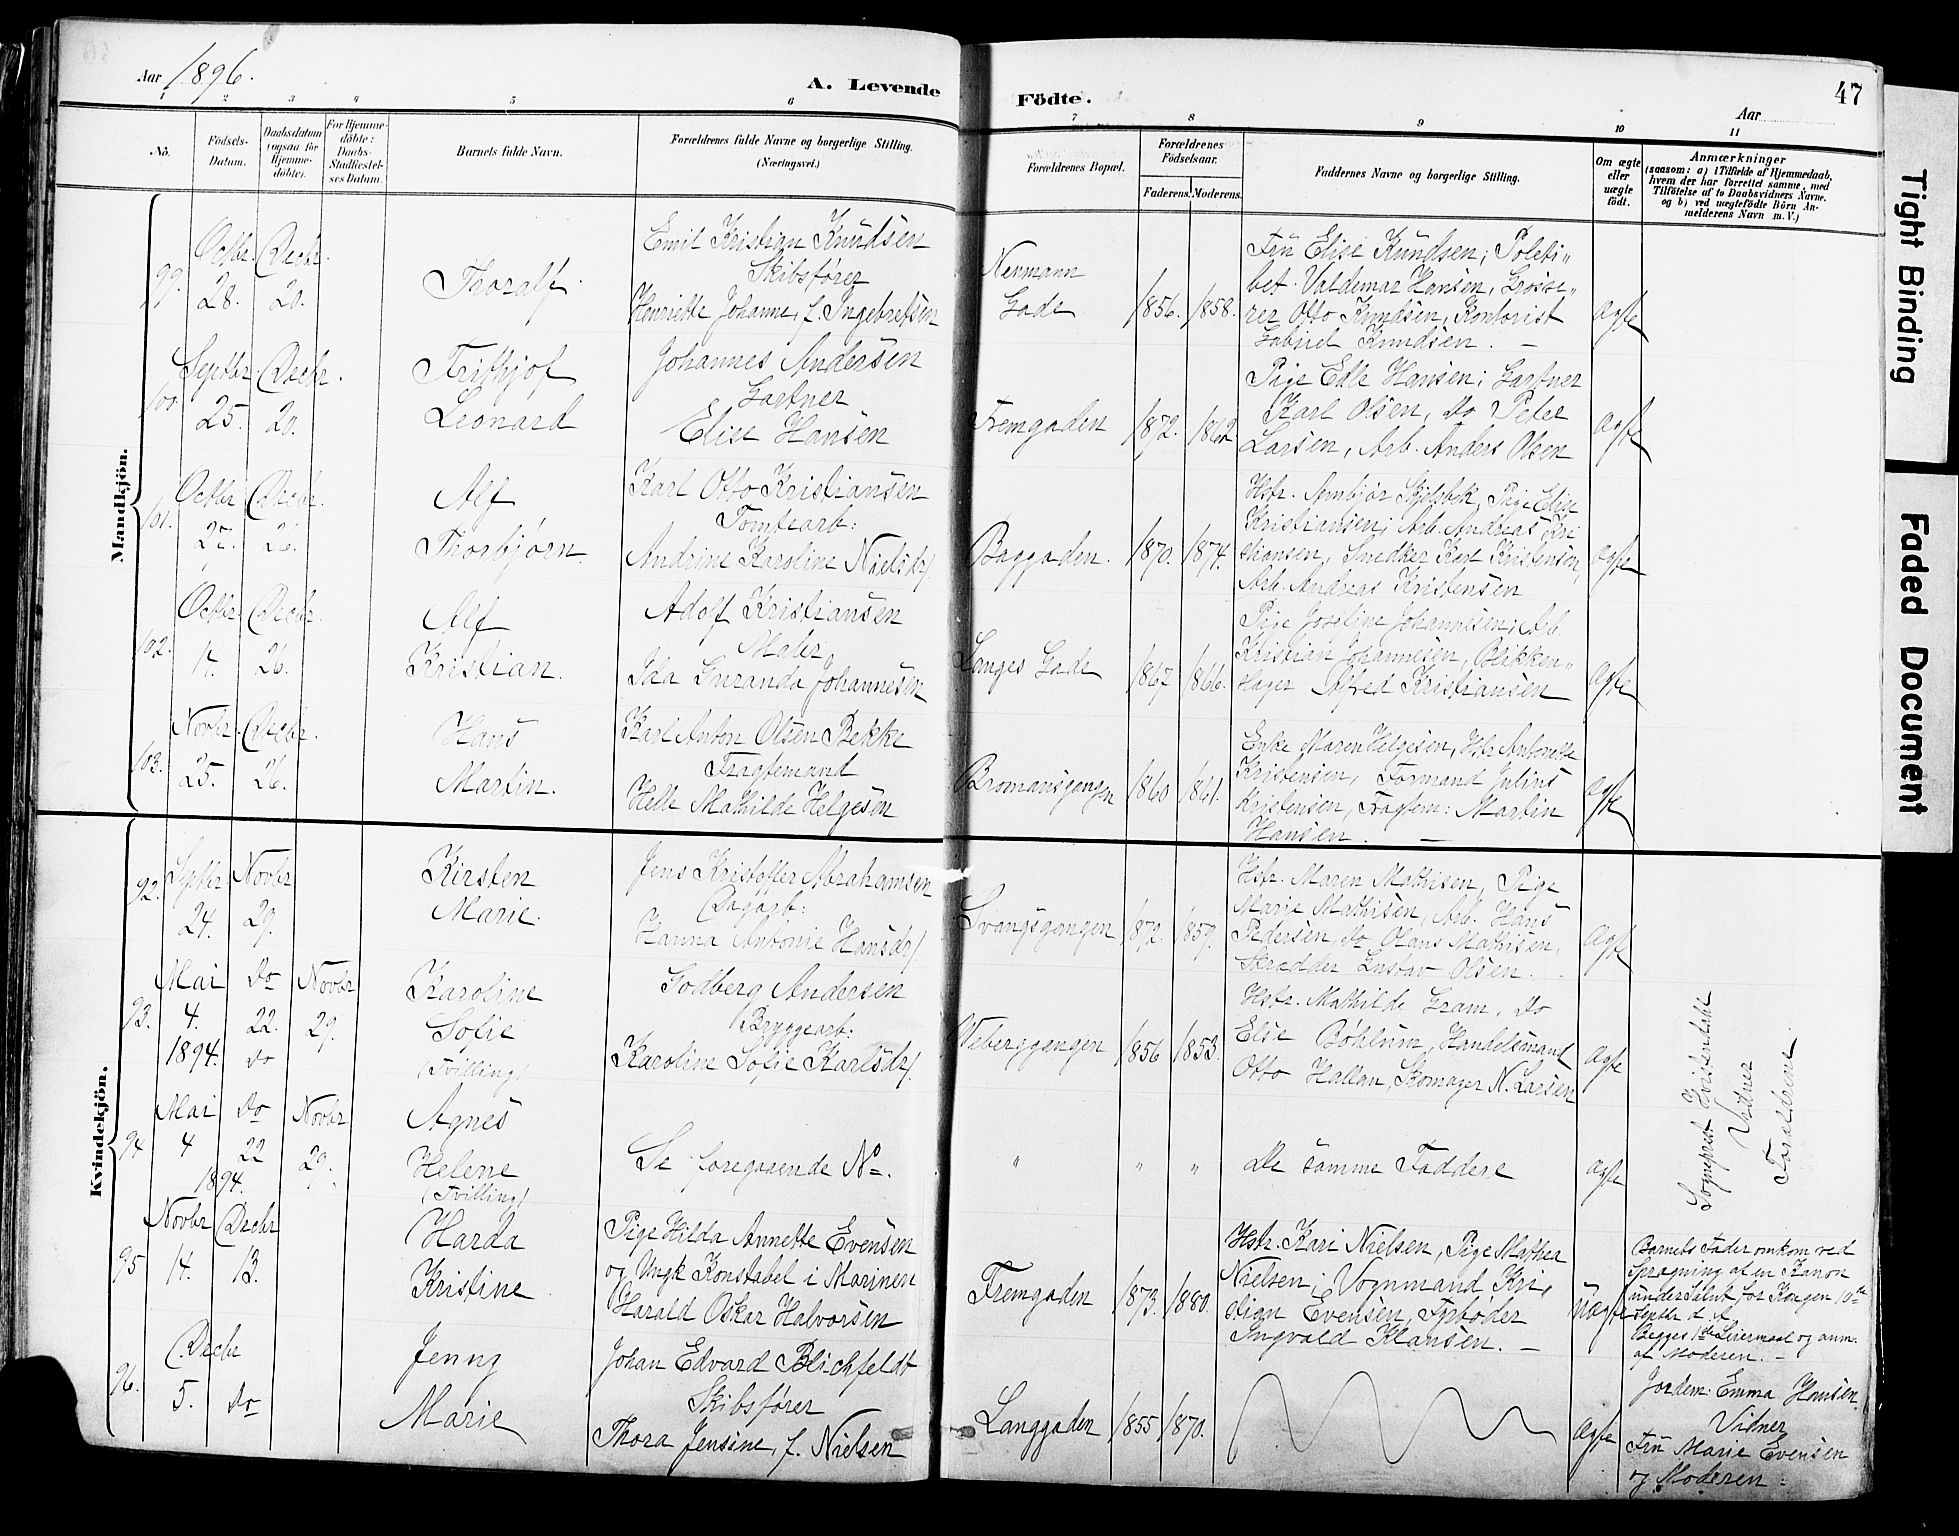 Aar 1896.
A. Levende
Födte.
Aar
47
1 2 3 4 5 6 7 8 9 10 11
No.
Födsels-Datum.
Daabsdatum (ogsaa for Hjemmedöbte).
For Hjemmedöbte: Daabs-Stadfæstelses Datum.
Barnets fulde Navn.
Forældrenes fulde Navne og borgerlige Stilling. (Næringsvei.)
Forældrenes Bopæl.
Forældrenes Födselsaar.
Faderens. Moderens.
Faddernes Navne og borgerlige Stilling.
Om ægte eller uægte födt.
Anmærkninger
(saasom: a) i Tilfælde af Hjemmedaab,
hvem der har forrettet samme, med
Tilföielse af to Daabsvidners Navne.
og b) ved uægtefödte Börn An-
melderens Navn m. V.)
Mandkjön.
99. Octbr. 28. Decbr. 20.
Thoralf
Emil Kristian Knudsen
Skibsfører
Henriette Johanne, f. Ingebretsen
Nermann
Gade
1856. 1858.
Frü Elise Knudsen; Politi„
bet. Valdemar Hansen, Grosse„
rer Otto Knudsen, Kontorist
Gabriel Knudsen. —
ægte
100 Septbr. 25. Decbr. 20.
Frithjof
Leonard
Johannes Andersen
Gartner
Elise Hansen
Fremgaden
1872. 1862.
Pige Edle Hansen; Gartner
Karl Olsen, Do Peter
Larsen, Arb. Anders Olsen
ægte
101. Octbr 27. Decbr. 26.
Alf
Thorbjørn.
Karl Otto Kristiansen
Tomtearb:
Andrine Karoline Nielsdr/
Baggaden.
1870. 1874.
Hstr. Arnbjør Skjelbek, Pige Elise
Kristiansen; Arb. Andreas Kri
stiansen, Snedker Karl Kristensen,
Arb. Andreas Kristensen
ægte
102. Octbr. 17. Decbr. 26.
Alf
Kristian.
Adolf Kristiansen
Maler
Ida Guranda Johannesen
Langes Gade
1867 1866.
Pige Josefine Johannesen; Arb.
Kristian Johannesen, Blikken„
slager Alfred Kristiansen
ægte
103. Novbr. 25. Decbr. 26.
Hans
Martin.
Karl Anton Olsen Bekke
Fragtemand
Helle Mathilde Helgesen
Bromansgangen
1860 1861.
Enke Maren Helgesen, Hstr Antonette
Kristensen, Formand Julius
Kristensen, Fragtem: Martin
Hansen. —
ægte
Kvindekjön.
92. Septbr. 24. Novbr 29.
Kirsten
Marie.
Jens Kristoffer Abrahamsen
Dagarb:
Hanna Antonie Hansdr/
Svangsgangen
1872. 1859.
Hstr. Maren Mathisen, Pige
Marie Mathisen, Arb. Hans
Pedersen, Do Olaus Mathisen,
Skrædder Gustav Olsen.
ægte
93. Mai 4. 1894. Do 22. Do Novbr 29.
Karoline
Sofie
(Tvilling)
Godberg Andersen
Bryggearb:
Karoline Sofie Karlsdr/
Weberggangen
1856 1853.
Hstr. Mathilde Gram, Do
Elise Bøhlum, Handelsmand
Otto Hallan, Skomager N. Larsen
ægte
94 Mai 4 1894. Do 22 Novbr 29.
Agnes
Helene
(Tvilling)
Se foregaaende No.
" " "
De samme Faddere
ægte
Sogneprest Kvistentoht
Vidner
Forældrene.
95 Novbr 14. Decbr 13.
Harda
Kristine
Pige Hilda Annette Evensen
og Ungk Konstabel i Marinen
Harald Oskar Halvorsen
Fremgaden
1873. 1880.
Hstr. Kari Nielsen, Pige Mathea
Nielsen; Vognmand Kri„
stian Evensen, Fyrbøder
Ingvald Klausen. —
Uægte
Barnets Fader omkom ved
Sprægning af en Kanon
under Salut for Kongen 10de
Septbr d. A.
Begges 1ste Leiermaal og anm.
af Moderen. —
96. Decbr 5. Do
Jenny
Marie
Johan Edvard Blichfeldt
Skibsfører
Thora Jensine, f. Nielsen
Langgaden
1855 1870.
ægte
Jordem: Emma Hansen
Vidner
Frü Marie Evensen
og Moderen.
Tight Binding
Faded Document